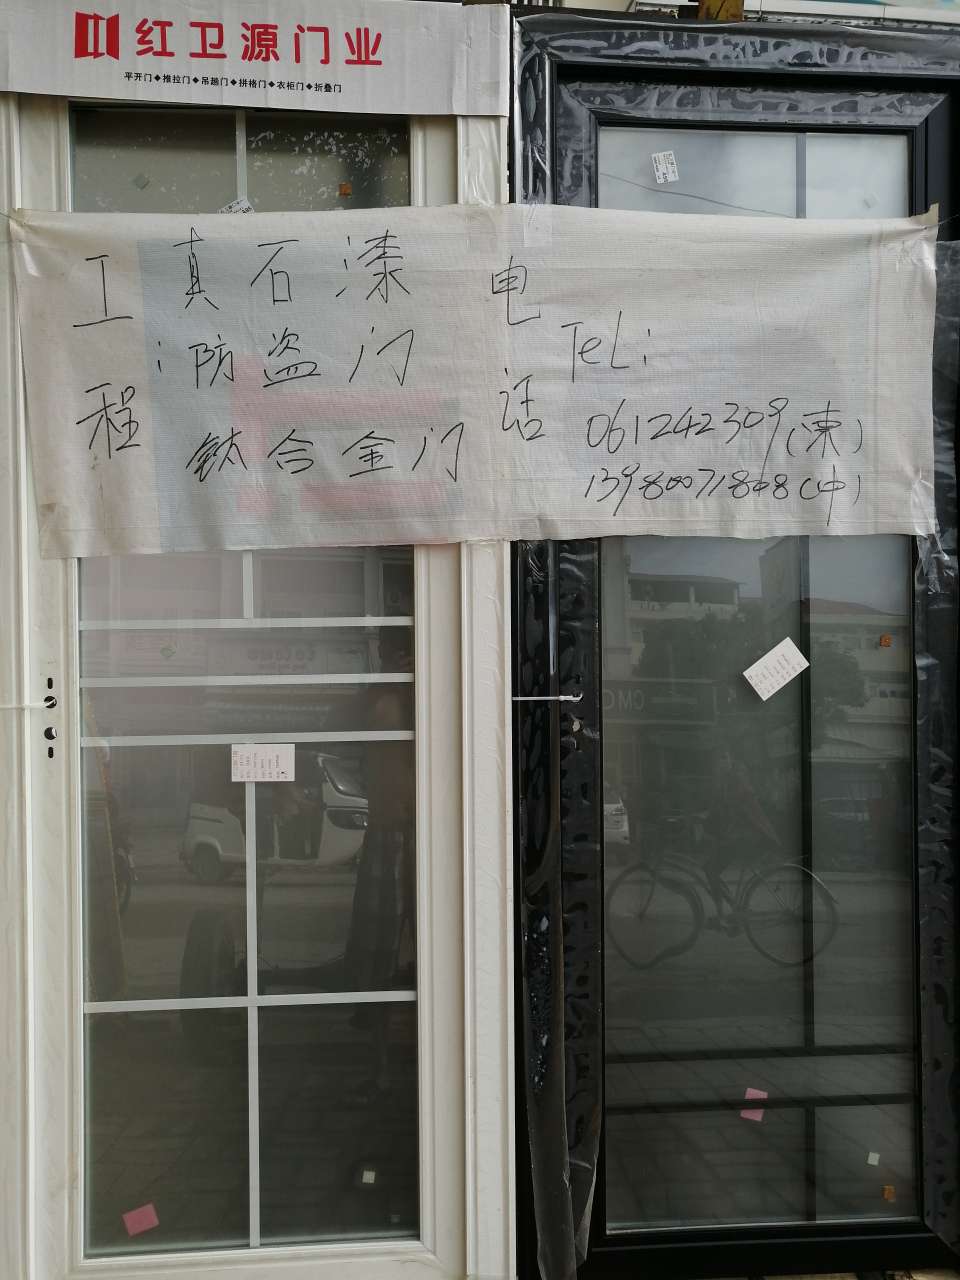 红卫源门业
平开门◆推拉门◆吊趟门◆拼格门◆衣柜门◆折叠门
工程:
真石漆
防盗门
钛合金门
电话
TeL:
061242309(柬)
13980071808(中)
CMC